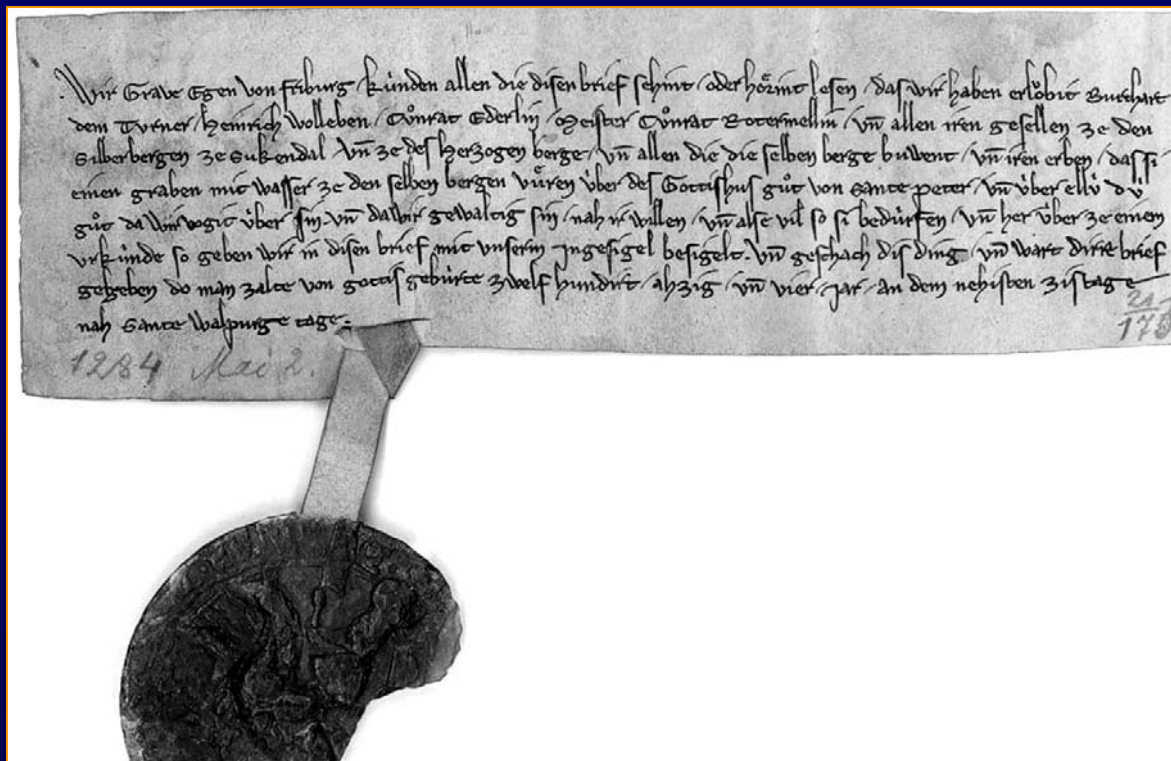 Wir Grave Egen von friburg / kúnden allen die disen brief sehint / oder hoͤrint lesen / das wir haben erlobit Burchart
dem Turner / Heinrich Wolleben / Cuͦnrat Ederlin / Meister Cuͦnrat Rotermellin / vn̄ allen iren gesellen ze den
Silberbergen ze Sukendal / vn̄ ze des Herzogen berge / vn̄ allen die die selben berge buwent / vn̄ iren erben / das si
einen graben mit wasser ze den selben bergen vuͤren úber des Gottishus guͦt von Sante peter / vn̄ úber ellú dú
guͦt da wir vogit úber sin / vn̄ da wir gewaltig sin / nah ir willen / vn̄ alse vil so si bedúrfen / vn̄ her úber ze einem
vrkúnde so geben wir in disen brief mit vnserm Jngesigel besigelt. vn̄ geschach dis ding / vn̄ wart dirre brief
gegeben do man zalte von gottis gebúrte zwelf hundirt / ahzig / vn̄ vier / jar / an dem nehisten zistage
nah Sante walpurge tage.
21
1284 Mai 2.